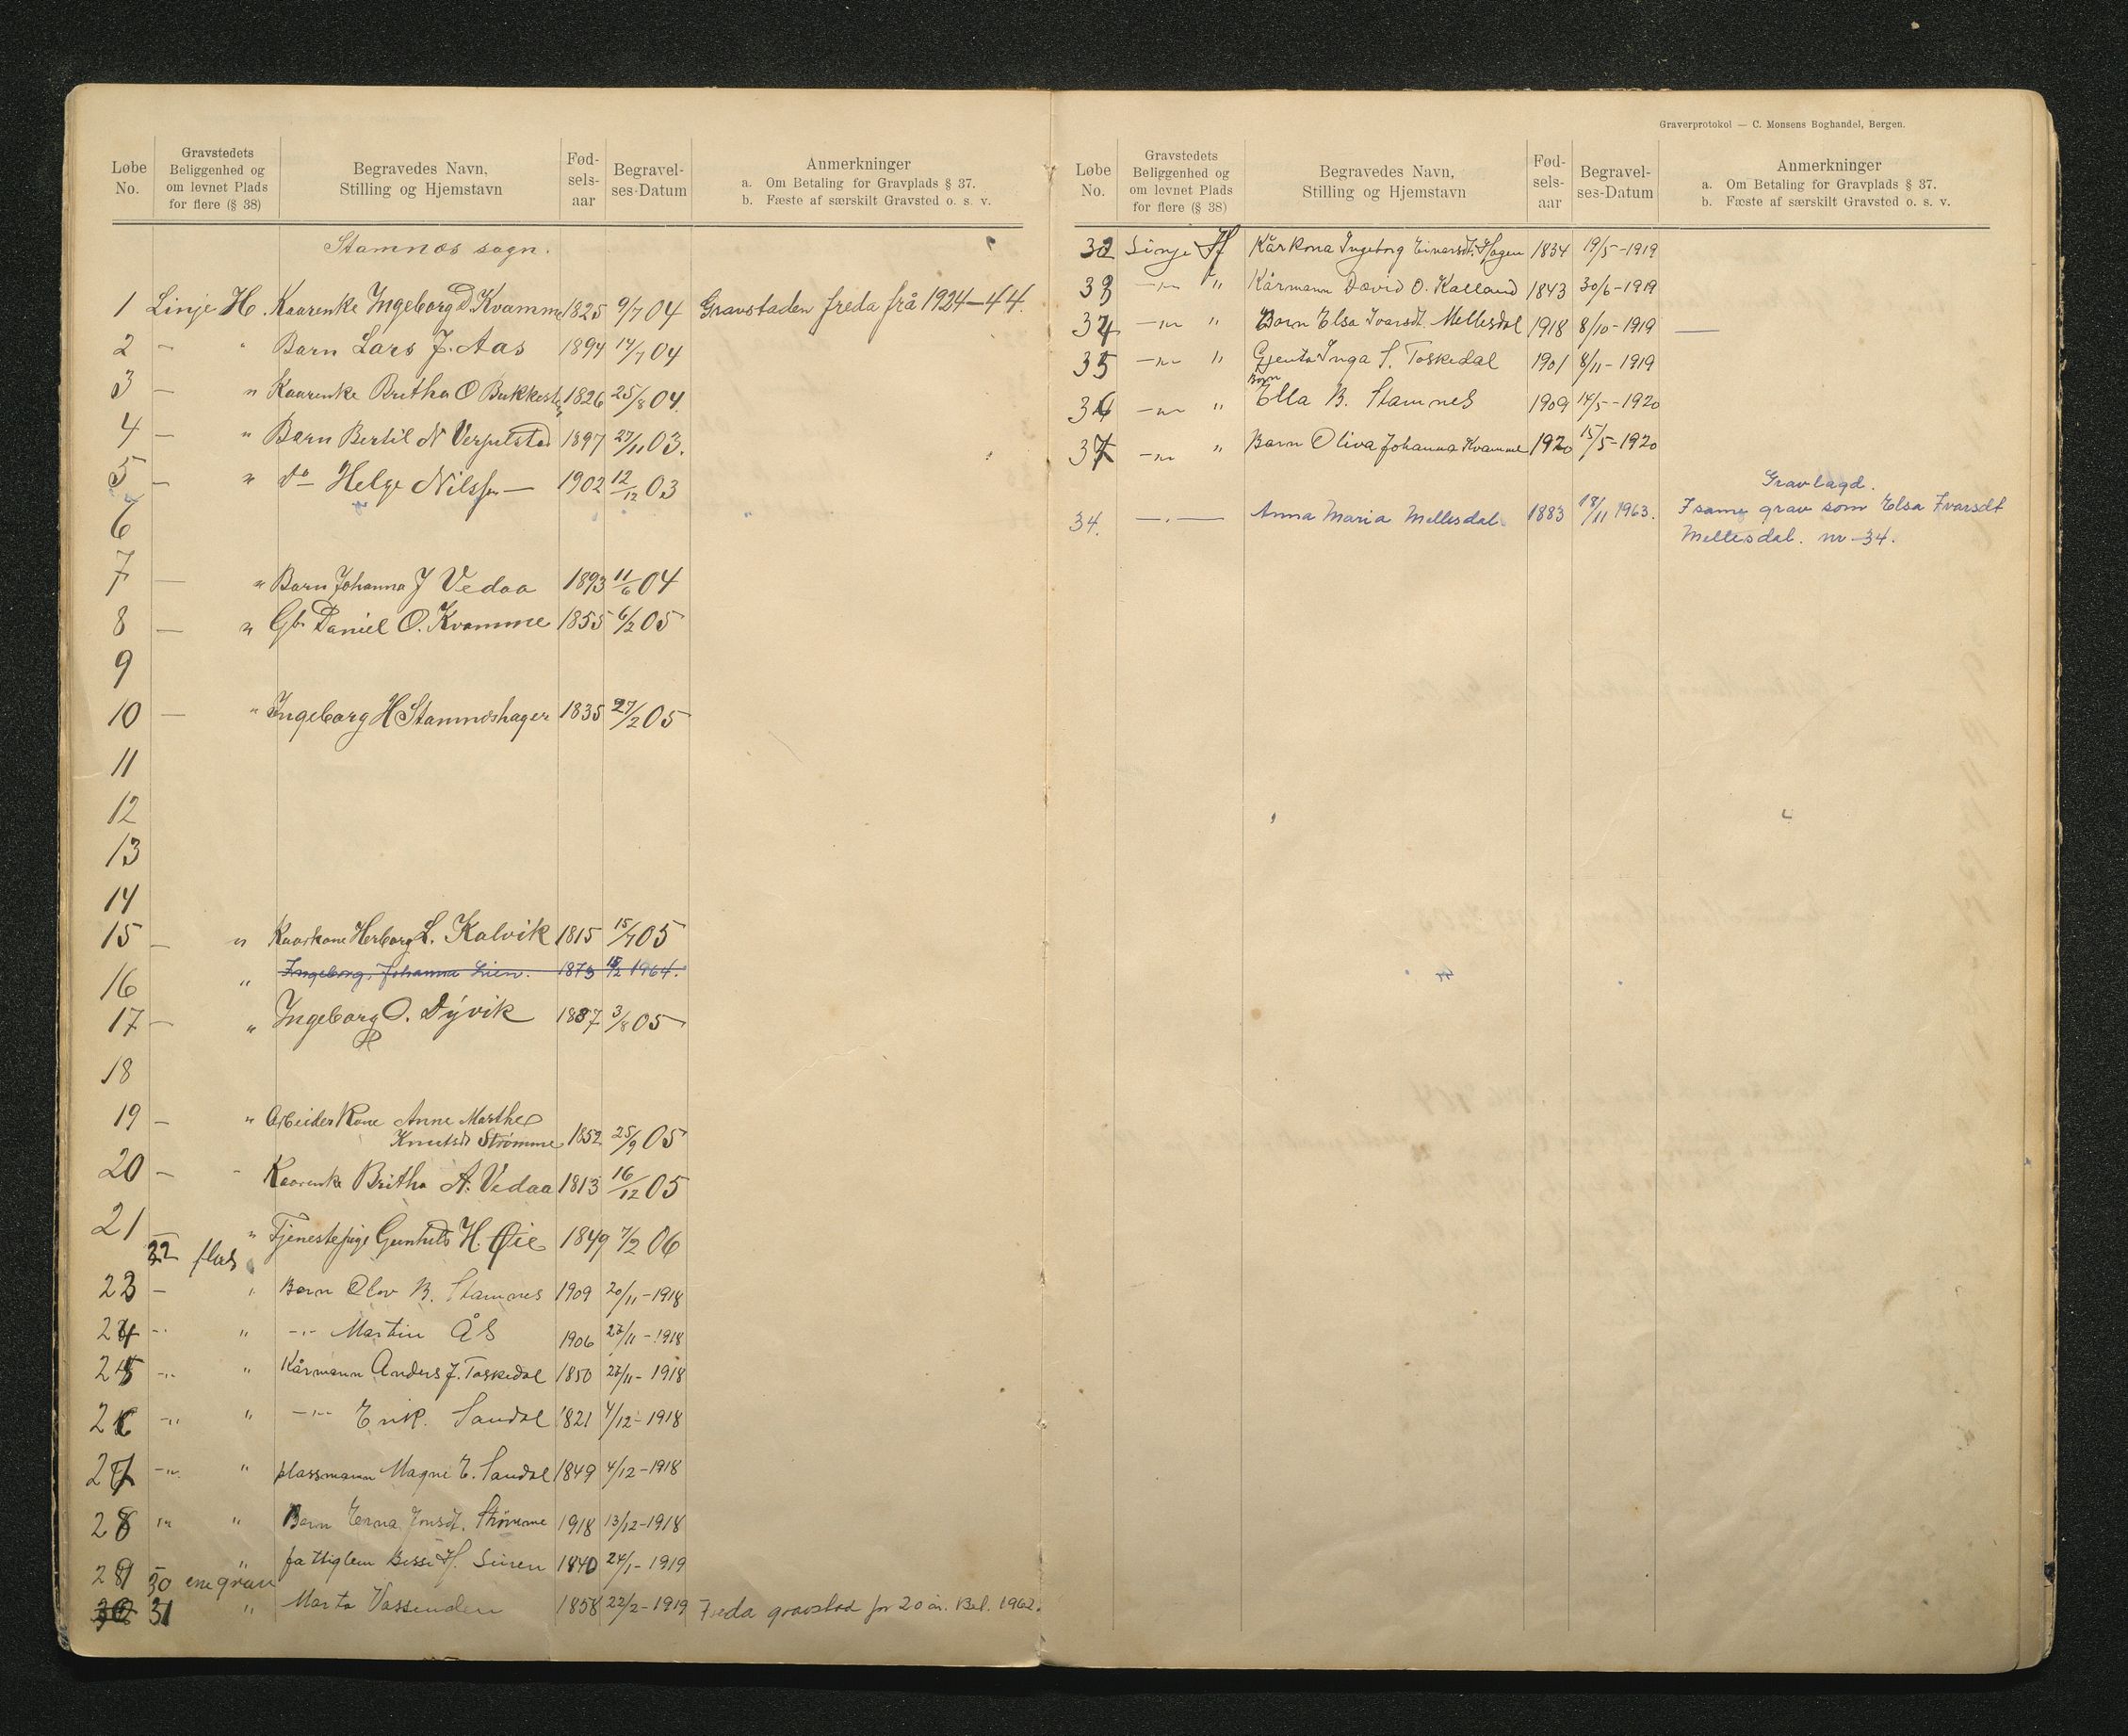 Løbe No. Gravstedets Beliggenhed og om levnet Plads for flere (§ 38) Begravedes Navn, Stilling og Hjemstavn Fød-sels-aar Begravel-ses-Datum Anmerkninger
a. Om Betaling for Gravplads § 37.
b. Fæste af særskilt Gravsted o. s. v.
Stamnes sogn.
1 Linje H. Kaarenke Ingeborg D. Kvamme 1825 9/7 04 Gravstaden freda frå 1924-44.
2 — " Barn Lars J. Aas 1894 14/7 04
3 — " Kaarenke Britha O 1826 25/8 04.
4 — " Barn Bertil N 1897 27/11 03.
5 — " do Helge Nilssen — 1902 12/12 03
6
7 — " Barn Johanna J Vedaa 1893 11/6 04
8 — " Gb. Daniel O. Kvamme 1855 6/2 05
9
10 — " Ingeborg H Stamneshagen 1835 27/2 05
11
12
13
14
15 — " Kaarkone Herborg L. Kalvik 1815 15/7 05
16 " Ingeborg Johanna Lien. 1873 1964.
17 — " Ingeborg O. Dyvik 1887 3/8 05
18
19 — " Arbeider Kone Anne Marthe
Knutsdt Strømme 1852 25/9 05
20 — " Kaarenke Britha A. Vedaa 1813 16/12 05
21 — " Tjenestepige H. Øie 1849 7/2 06
22 plas "
23 — " Barn Olav B. Stamnes 1909 20/11-1918
24 -"- " -"- Martin Ås 1906 27/11-1918
25 -"- " Kårmann Anders J. Toskedal 1850 27/11-1918
26 -"- " -"- Erik. Sandal 1821 4/12-1918
27 -"- " plassmann Magne E. Sandal 1849 4/12-1918
28 -"- " Barn Erna Jonsdt. Strømme 1918 13/12-1918
29 " fattiglem H. 1840 24/1-1919
30 ene grav
31 " Marta Vassenden 1858 22/2-1919 Freda gravstad for 20 år. Bet. 1962.
Graverprotokol — C. Monsens Boghandel, Bergen.
Løbe No. Gravstedets Beliggenhed og om levnet Plads for flere (§ 38) Begravedes Navn, Stilling og Hjemstavn Fød-sels-aar Begravel-ses-Datum Anmerkninger
a. Om Betaling for Gravplads § 37.
b. Fæste af særskilt Gravsted o. s. v.
32 Linje H Kårkona Ingeborg Einarsdt. Hagen 1834 19/5-1919
33 -"- " Kårmann David O. Kalland 1843 30/6-1919
34 -"- " Barn Elsa Ivarsdt. Mellesdal 1918 8/10-1919 —
35 -"- " Gjenta Inga S. Toskedal 1901 8/11-1919
36 -"- " Barn Ella B. Stamnes 1909 14/5-1920
37 -"- " Barn Oliva Johanna Kvamme 1920 15/5-1920
Gravlagd.
34. —"— Anna Maria Mellesdal. 1883 18/11 1963. I same grav som Elsa Ivarsdt
Mellesdal. nr 34.